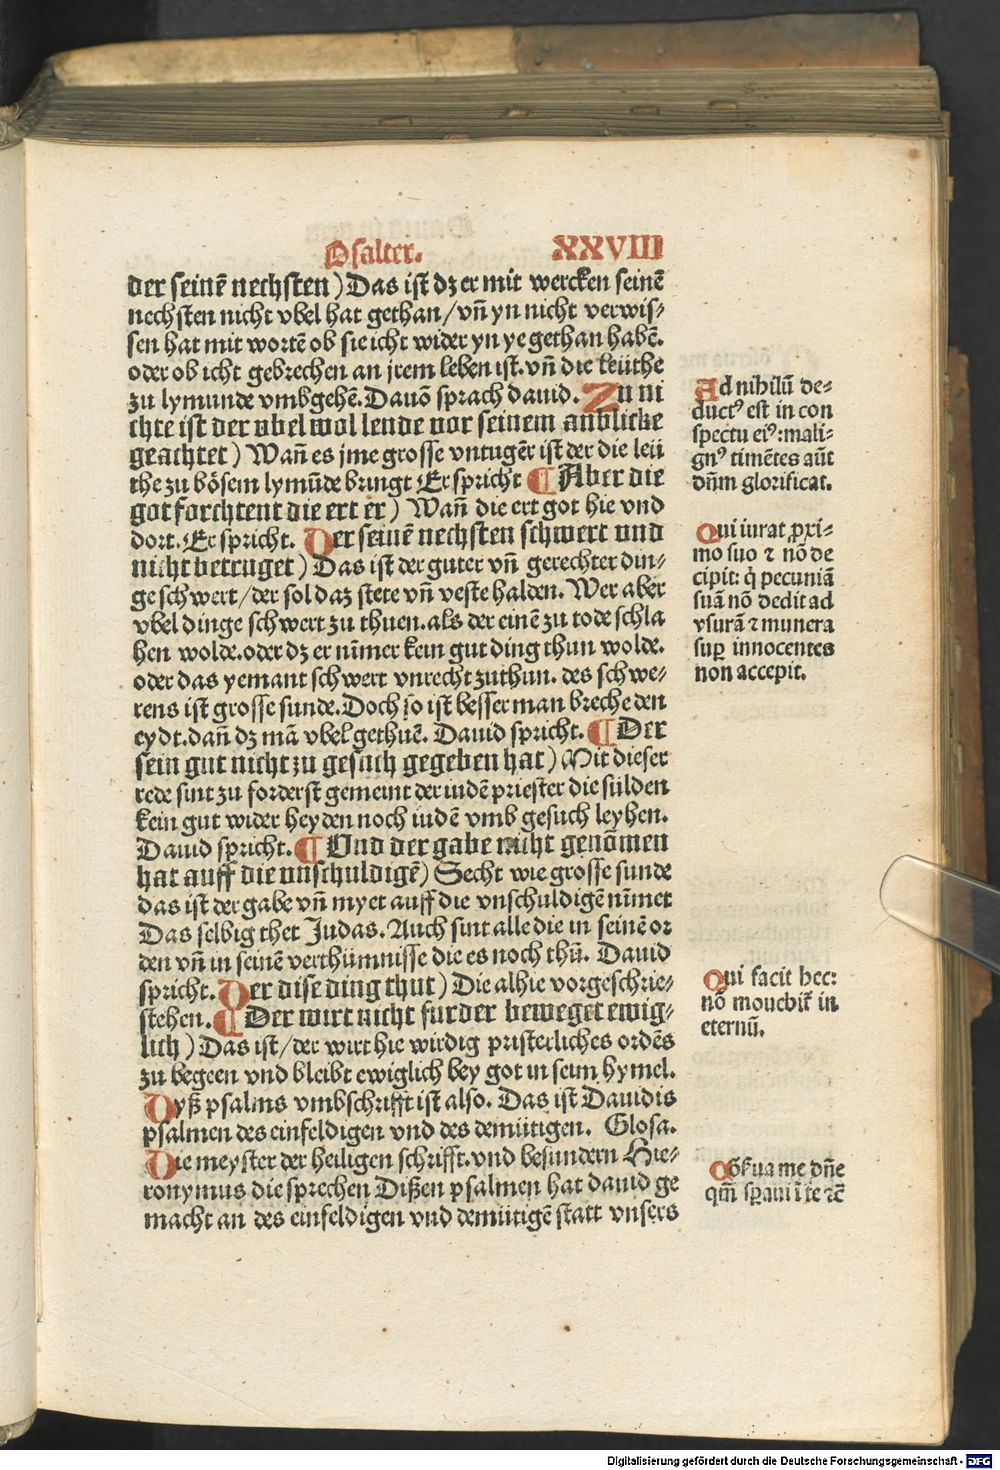 Psalter. XXVIII
der seinē nechsten) Das ist dz er mit wercken seinē
nechsten nicht vbel hat gethan/vn̄ yn nicht verwis⸗
sen hat mit wortē ob sie icht wider yn ye gethan habē.
oder ob icht gebrechen an jrem leben ist. vn̄ die leüthe
zu lymunde vmbgehē. Dauō sprach dauid. Zu ni
chte ist der vbel wol lende vor seinem anblicke
geachtet) Wan̄ es jme grosse vntugēt ist der die leü
the zu bösem lymūde bringt Er spricht ¶ Aber die
got forchtent die ert er) Wan̄ die ert got hie vnd
dort. Er spricht. Der seinē nechsten schwert vnd
nicht betruget) Das ist der guter vn̄ gerechter din⸗
ge schwert/der sol daz stete vn̄ veste halden. Wer aber
vbel dinge schwert zu thuen. als der einē zu tode schla
hen wolde. oder dz er nīmer kein gut ding thun wolde.
oder das yemant schwert vnrecht zuthun. des schwe⸗
rens ist grosse sunde. Doch so ist besser man breche den
eydt. dan̄ dz mā vbel gethuē. Dauid spricht. ¶ Der
sein gut nicht zu gesuch gegeben hat) Mit dieser
rede sint zu forderst gemeint der iudē priester die sülden
kein gut wider heyden noch iudē vmb gesuch leyhen.
Dauid spricht. ¶ Vnd der gabe nicht genōmen
hat auff die vnschuldigē) Secht wie grosse sunde
das ist der gabe vn̄ myet auff die vnschuldigē nīmet
Das selbig thet Judas. Auch sint alle die in seinē or
den vn̄ in seinē verthümnisse die es noch thū. Dauid
spricht. Der dise ding thut) Die alhie vorgeschrie⸗
stehen. ¶ Der wirt nicht furder beweget ewig⸗
lich) Das ist/der wirt hie wirdig pristerliches ordēs
zu begeen vnd bleibt ewiglich bey got in seim hymel.
Dyß psalms vmbschrifft ist also. Das ist Dauidis
psalmen des einfeldigen vnd des demütigen. Glosa.
Die meyster der heiligen schrifft. vnd besundern Hie⸗
ronymus die sprechen Dißen psalmen hat dauid ge
macht an des einfeldigen vnd demütigē statt vnsers
Ad nihilū de⸗
ductꝰ est in con
spectu eiꝰ: mali⸗
gnꝰ timētes aūt
dn̄m glorificat.
Qui iurat ꝓxi⸗
mo suo ⁊ nō de
cipit: q̇ pecuniā
suā nō dedit ad
vsurā ⁊ munera
suꝑ innocentes
non accepit.
Qui facit hec:
nō mouebit̄ in
eternū.
Cōẜua me dn̄e
qm̄ sꝑaui ī te ⁊c̄
Digitalisierung gefördert durch die Deutsche Forschungsgemeinschaft - DFG